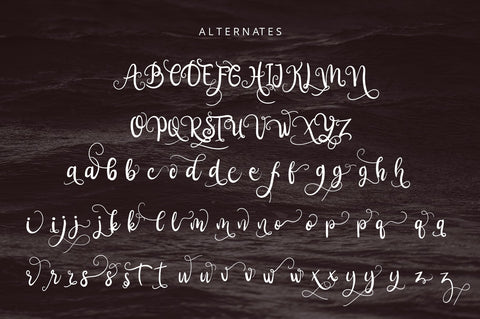 ALTERNATES
ABCDEFGHIJKLMN
OPQRSTUVWXYZ
aabbccddeeffgghh
iijjkkllmmnnooppqq
rrrssttuuvvwwxxyyyzz